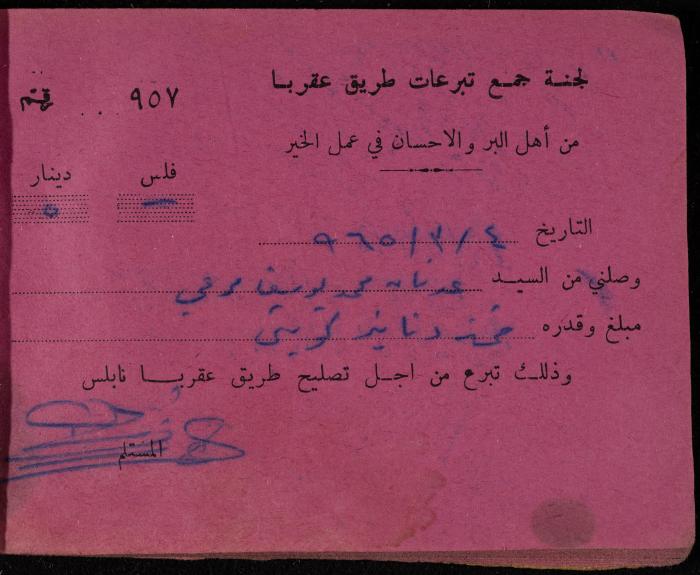 لجنة جمع تبرعات طريق عقربا
رقم ٩٥٧
من أهل البر والاحسان في عمل الخير
فلس دينار
— ٥
التاريخ ٤/٣/٩٦٥
وصلني من السيد عدنان محمد يوسف مرعي
مبلغ وقدره خمسة دنانير كويتي
وذلك تبرع من اجل تصليح طريق عقربا نابلس
المستلم